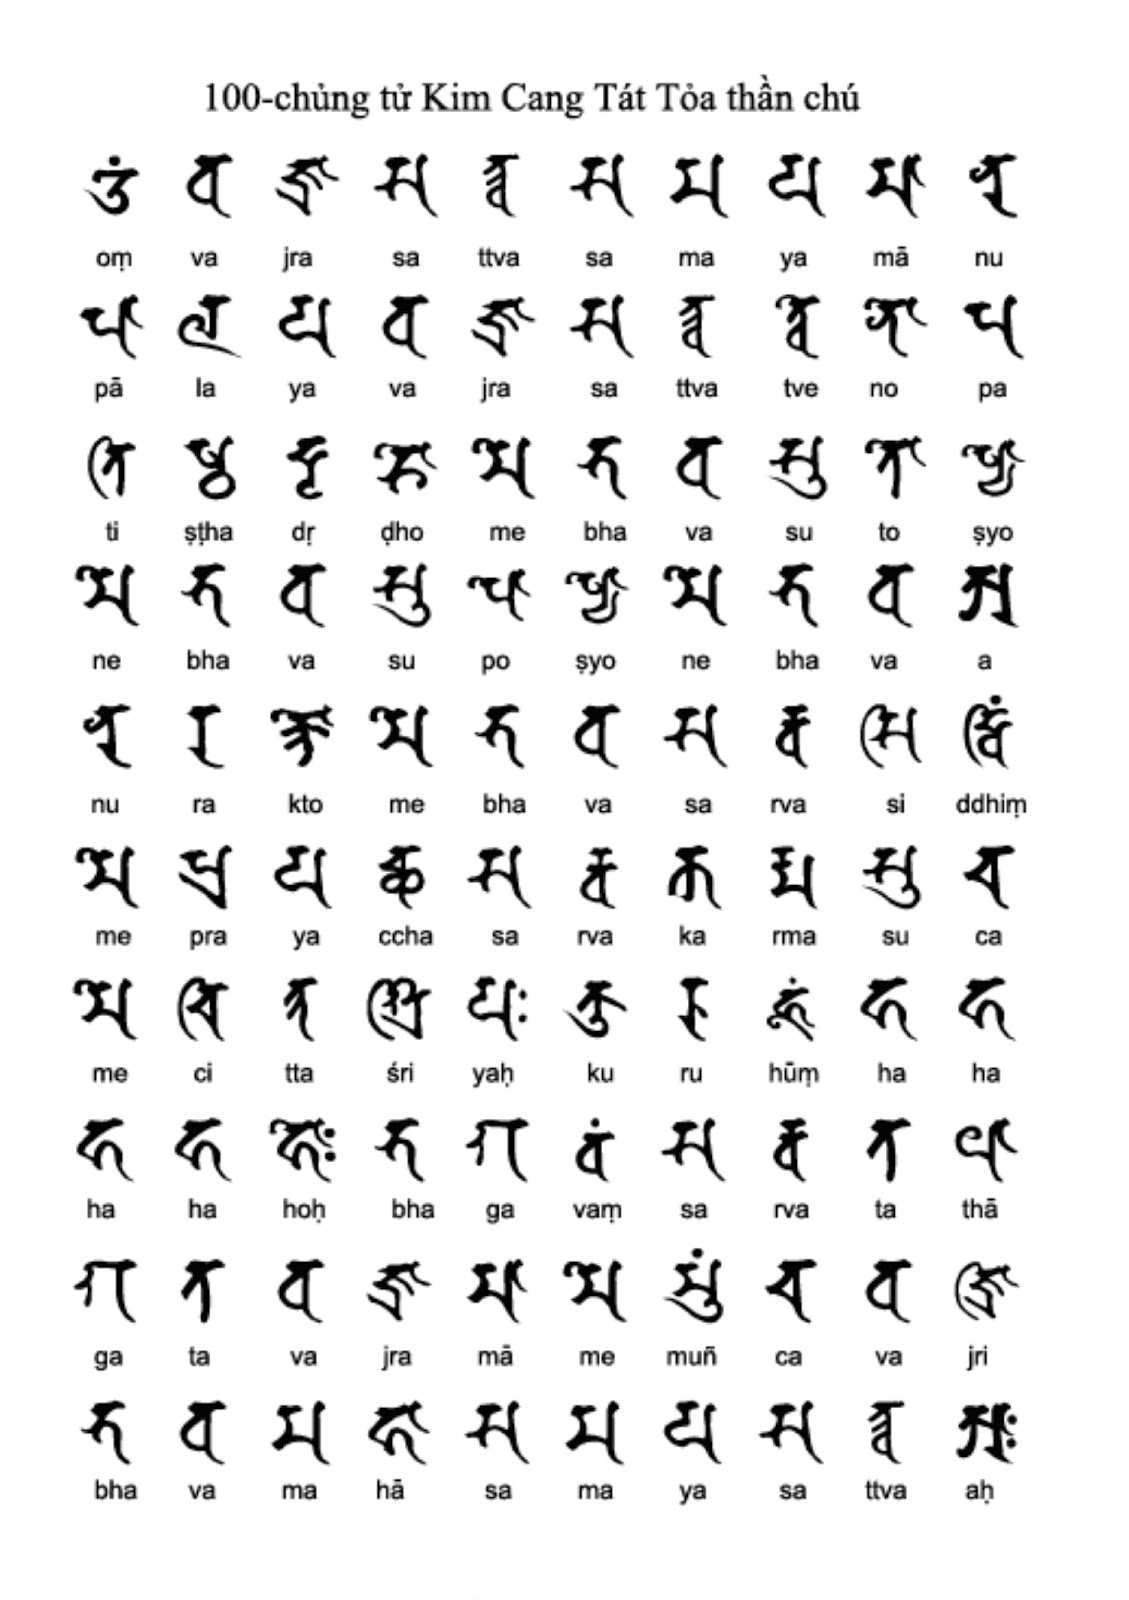 100-chủng tử Kim Cang Tát Tỏa thần chú
𑖌𑖼 𑖪 𑖕𑖿𑖨 𑖭 𑖝𑖿𑖝𑖿𑖪 𑖭 𑖦 𑖧 𑖦𑖯 𑖡𑖲
oṃ va jra sa ttva sa ma ya mā nu
𑖢𑖯 𑖩 𑖧 𑖪 𑖕𑖿𑖨 𑖭 𑖝𑖿𑖝𑖿𑖪 𑖝𑖿𑖪𑖸 𑖡𑖺 𑖢
pā la ya va jra sa ttva tve no pa
𑖝𑖰 𑖬𑖿𑖙 𑖟𑖴 𑖛𑖺 𑖦𑖸 𑖥 𑖪 𑖭𑖲 𑖝𑖺 𑖬𑖿𑖧𑖺
ti ṣṭha dṛ ḍho me bha va su to ṣyo
𑖦𑖸 𑖥 𑖪 𑖭𑖲 𑖢𑖺 𑖬𑖿𑖧𑖺 𑖦𑖸 𑖥 𑖪 𑖀
ne bha va su po ṣyo ne bha va a
𑖡𑖲 𑖨 𑖎𑖿𑖝𑖺 𑖦𑖸 𑖥 𑖪 𑖭 𑖨𑖿𑖪 𑖭𑖰 𑖟𑖿𑖠𑖰𑖽
nu ra kto me bha va sa rva si ddhiṃ
𑖦𑖸 𑖢𑖿𑖨 𑖧 𑖓𑖿𑖔 𑖭 𑖨𑖿𑖪 𑖎 𑖨𑖿𑖦 𑖭𑖲 𑖓
me pra ya ccha sa rva ka rma su ca
𑖦𑖸 𑖓𑖰 𑖝𑖿𑖝 𑖫𑖿𑖨𑖰 𑖧𑖾 𑖎𑖲 𑖨𑖲 𑖮𑖳𑖽 𑖮 𑖮
me ci tta śri yaḥ ku ru hūṃ ha ha
𑖮 𑖮 𑖮𑖺𑖾 𑖥 𑖐 𑖪𑖽 𑖭 𑖨𑖿𑖪 𑖝 𑖞𑖯
ha ha hoḥ bha ga vaṃ sa rva ta thā
𑖐 𑖝 𑖪 𑖕𑖿𑖨 𑖦𑖯 𑖦𑖸 𑖦𑖲𑖽 𑖓 𑖪 𑖕𑖿𑖨𑖰
ga ta va jra mā me muñ ca va jri
𑖥 𑖪 𑖦 𑖮𑖯 𑖭 𑖦 𑖧 𑖭 𑖝𑖿𑖝𑖿𑖪 𑖀𑖾
bha va ma hā sa ma ya sa ttva aḥ